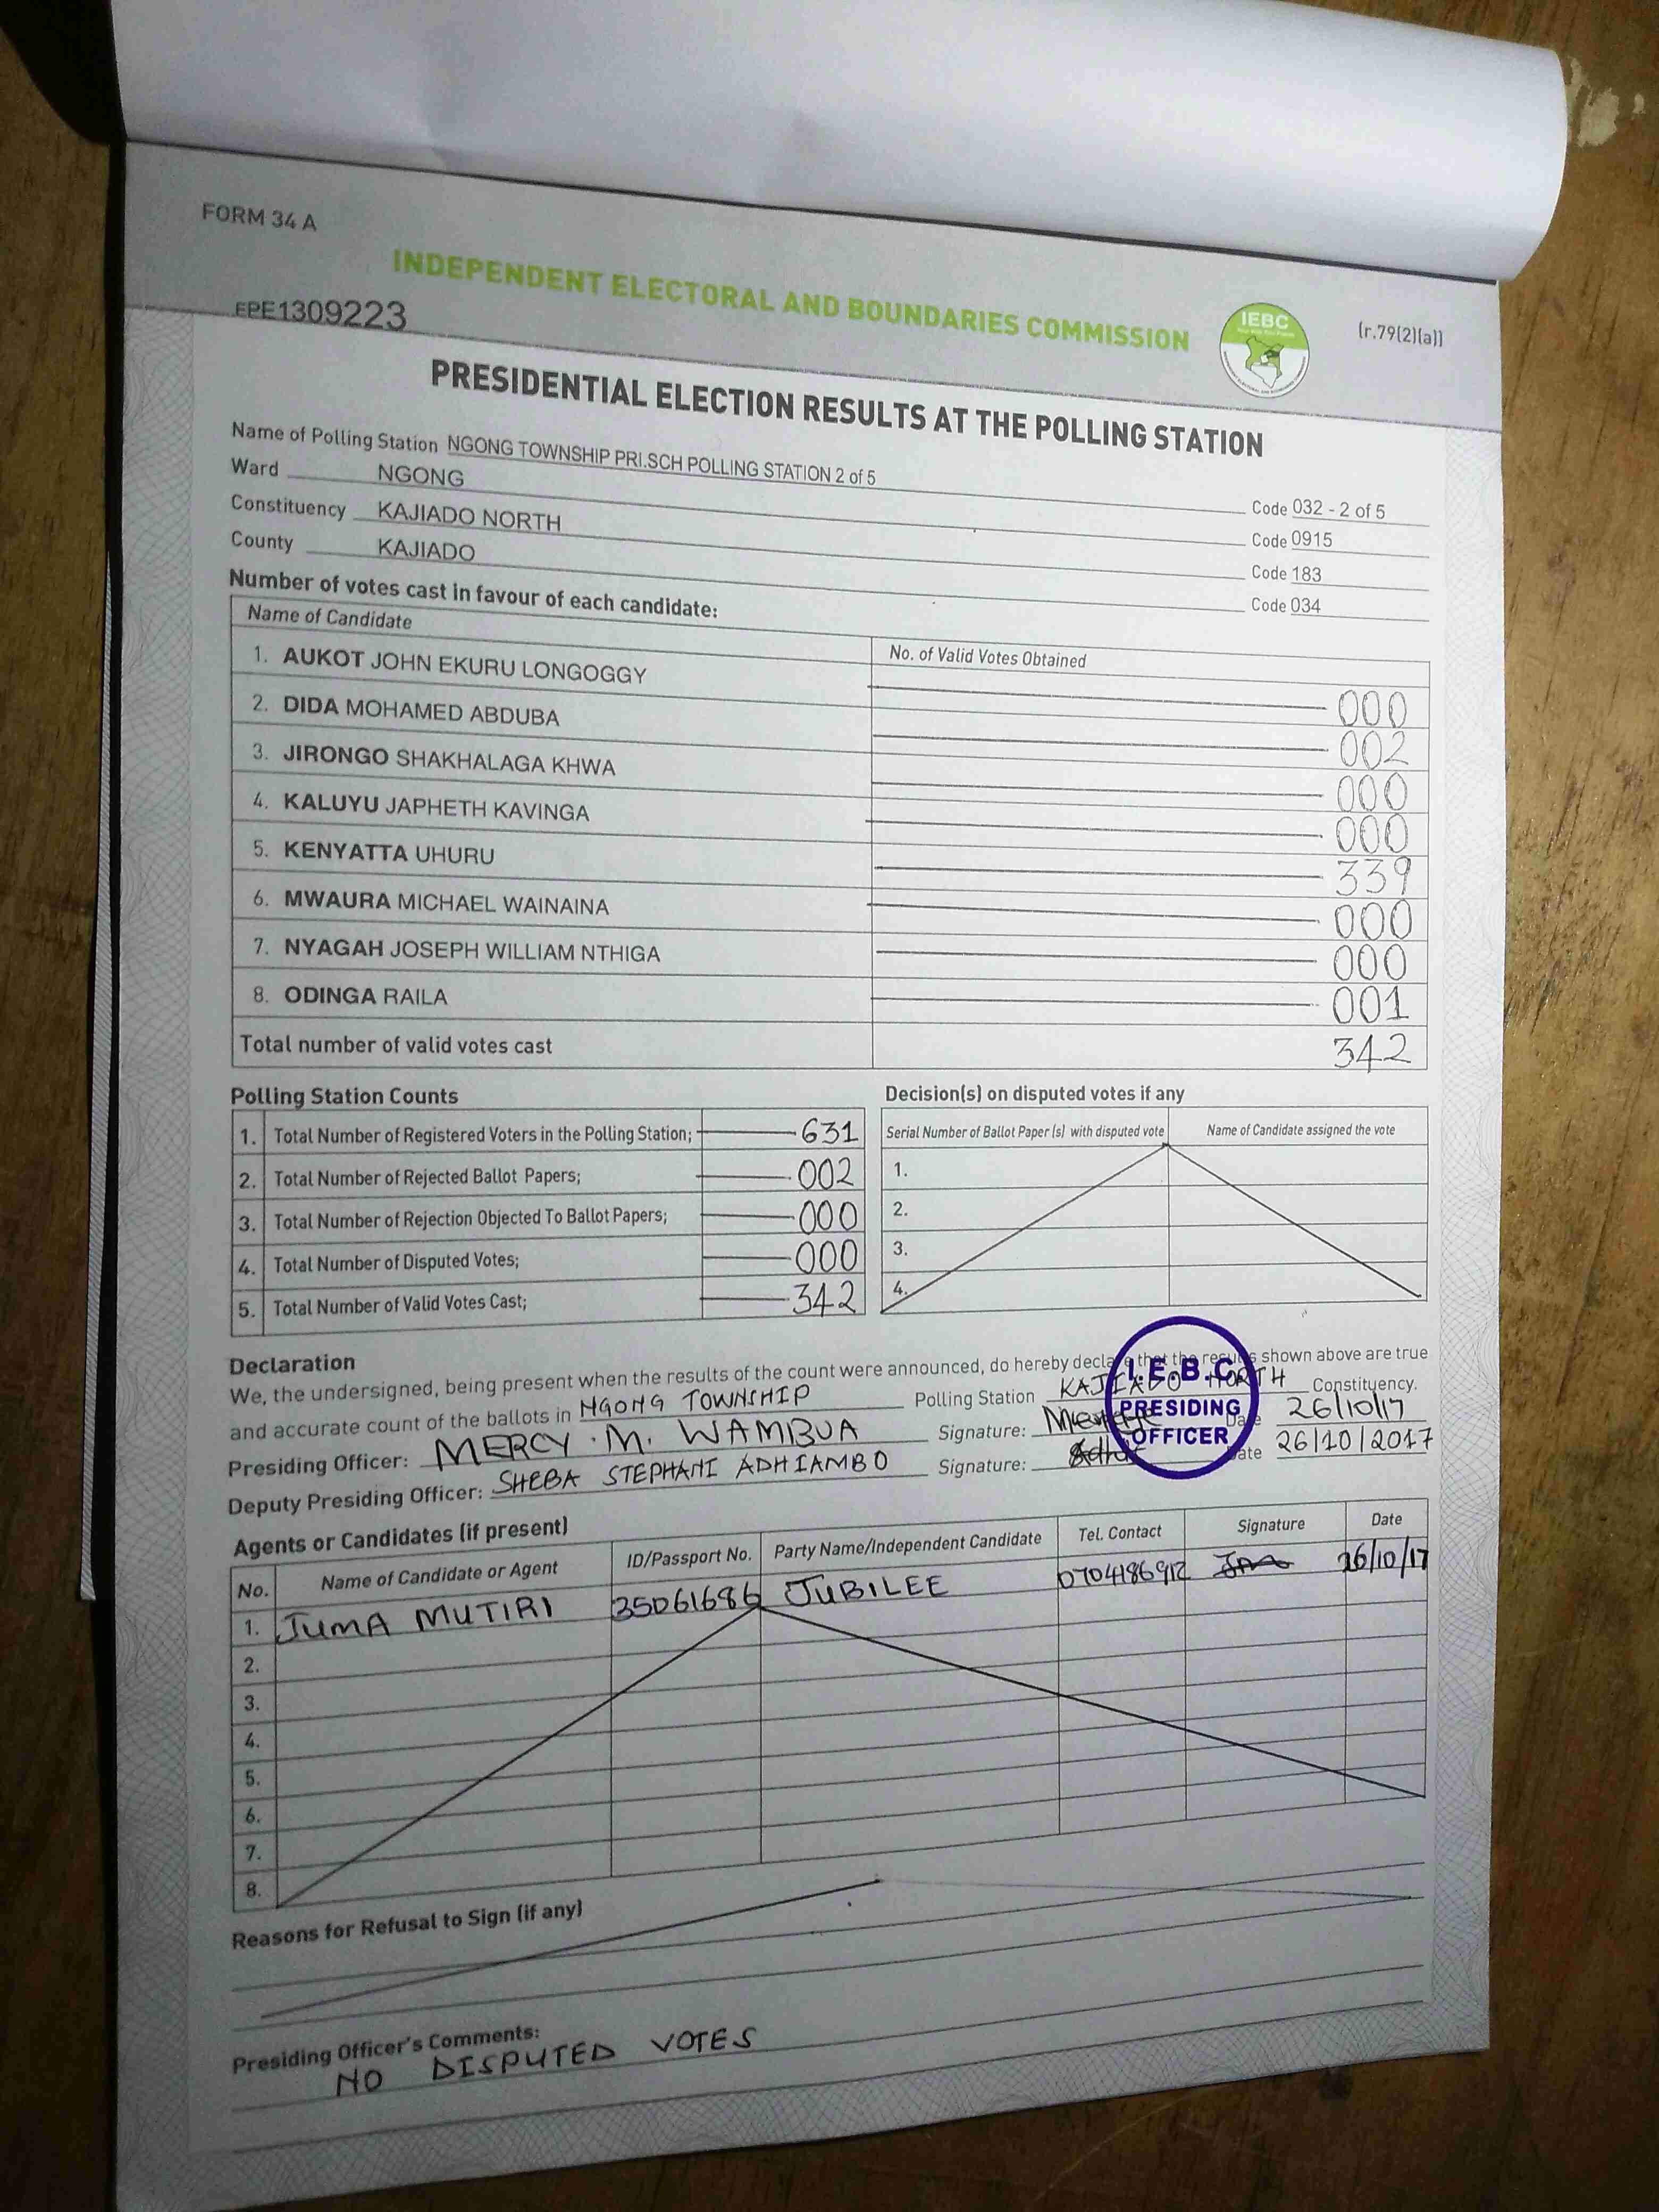 FORM 34 A
INDEPENDENT ELECTORAL AND BOUNDARIES COMMISSION
IEBC
(r.79(2)(a))
EPE1309223
PRESIDENTIAL ELECTION RESULTS AT THE POLLING STATION
Name of Polling Station NGONG TOWNSHIP PRI.SCH POLLING STATION 2 of 5 Code 032 - 2 of 5
Ward NGONG Code 0915
Constituency KAJIADO NORTH Code 183
County KAJIADO Code 034
Number of votes cast in favour of each candidate:
Name of Candidate No. of Valid Votes Obtained
1. AUKOT JOHN EKURU LONGOGGY 000
2. DIDA MOHAMED ABDUBA 002
3. JIRONGO SHAKHALAGA KHWA 000
4. KALUYU JAPHETH KAVINGA 000
5. KENYATTA UHURU 339
6. MWAURA MICHAEL WAINAINA 000
7. NYAGAH JOSEPH WILLIAM NTHIGA 000
8. ODINGA RAILA 001
Total number of valid votes cast 342
Polling Station Counts
1. Total Number of Registered Voters in the Polling Station; 631
2. Total Number of Rejected Ballot Papers; 002
3. Total Number of Rejection Objected To Ballot Papers; 000
4. Total Number of Disputed Votes; 000
5. Total Number of Valid Votes Cast; 342
Decision(s) on disputed votes if any
Serial Number of Ballot Paper (s) with disputed vote Name of Candidate assigned the vote
1.
2.
3.
4.
Declaration
We, the undersigned, being present when the results of the count were announced, do hereby declare that the results shown above are true
and accurate count of the ballots in NGONG TOWNSHIP Polling Station KAJIADO NORTH Constituency.
Presiding Officer: MERCY .M. WAMBUA Signature: Date 26/10/17
Deputy Presiding Officer: SHEBA STEPHANI ADHIAMBO Signature: Date 26/10/2017
I.E.B.C
PRESIDING
OFFICER
Agents or Candidates (if present)
No. Name of Candidate or Agent ID/Passport No. Party Name/Independent Candidate Tel. Contact Signature Date
1. JUMA MUTIRI 35061686 JUBILEE 0704186912 26/10/17
2.
3.
4.
5.
6.
7.
8.
Reasons for Refusal to Sign (if any)
Presiding Officer's Comments:
NO DISPUTED VOTES